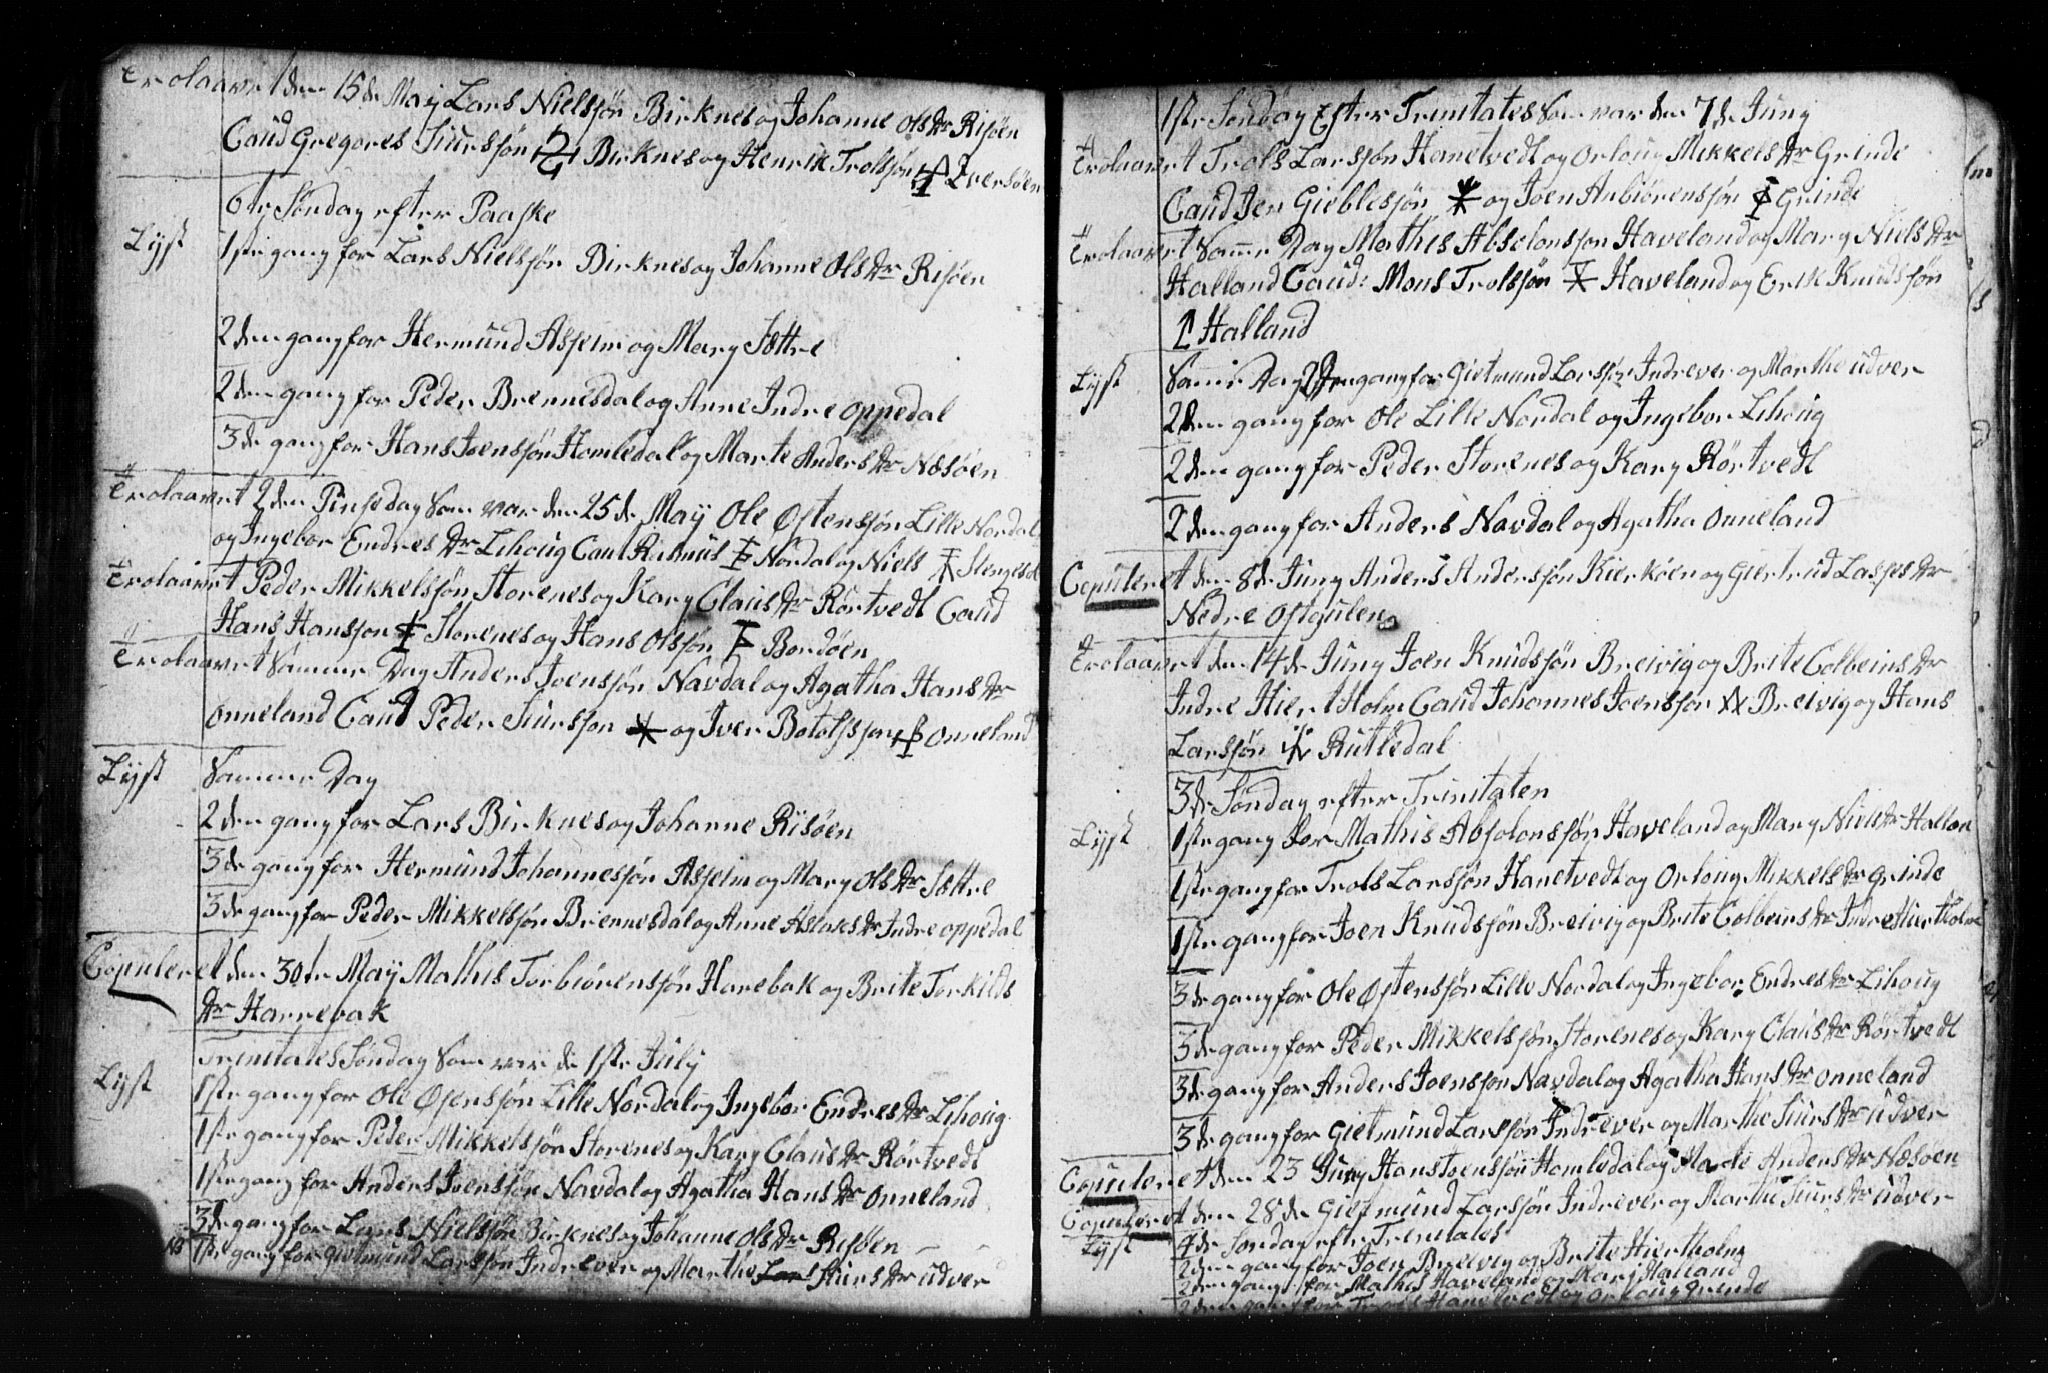 Trolaavet den 15de Maij Lars Nielssøn Birknes og Johanne Ols dr Risøen
Caud Gregores Siurssøn Birknes og Henrik Trolssøn Iversøen
6te Søndag efter Paaske
Lyst 1ste gang for Lars Nielssøn Birknes og Johanne Ols dr Risøen
2den gang for Hermund Asheim og Mary Sættre
2den gang for Peder Brennesdal og Anne Indre oppedal
3de gang for Hans Joenssøn Homledal og Marte Anders dr Næsøen
Trolaavet 2den Pinsedag Som var den 25de Maij Ole Østenssøn Lille Nordal
og Ingebor Endres dr Lihoug Caut Rasmus Nordal og Niels
Trolaavet Peder Mikkelssøn Storenes og Kary Claus dr Rörtvedt Caud
Hans Hanssøn Storenes og Hans Olssøn Bordøen
Trolaavet Samme Dag Anders Joenssøn Navdal og Agatha Hans dr
Onneland Caud Peder Siurssøn og Iver Botolfssøn Onneland
Lyst Samme Dag
2den gang for Lars Birknes og Johanne Risøen
3de gang for Hermund Johannessøn Asheim og Mary Ols dr Sættre
3de gang for Peder Mikkelssøn Brennesdal og Anne Aslaks dr Indre oppedal
Copuleret den 30te Maij Mathis Torbiørenssøn Harebak og Brite Torkilds
dr Harrebak
Lyst Trinitates Søndag Som var de 1ste July
1ste gang for Ole Øsenssøn Lille Nordal og Ingebor Endres dr Lihoug
1ste gang for Peder Mikkelssøn Storenes og Kary Claus dr Rörtvedt
1ste gang for Anders Joenssøn Navdal og Agatha Hans dr Onneland
3de gang for Lars Nielssøn Birknes og Johanne Ols dr Risøen
NB 1ste gang for Gietmund Larssøn Indrever og Marthe Siurs dr udver
1ste Søndag Efter Trinitates Som var den 7de Juny
Trolaavet Trols Larssøn Hanetvedt og Orloug Mikkels dr Grinde
Caud Jen Gieblessøn og Joen Anbiörenssøn Grinde
Trolaavet Samme Dag Mathis Absolonssøn Haveland og Mary Niels dr
Halland Caud: Mons Trolssøn Haveland og Erik Knudssøn
Halland
Lyst Samme Dag 2den gang for Gietmund Larssøn Indrever og Marthe udver
2den gang for Ole Lille Nordal og Ingebor Lihoug
2den gang for Peder Storenes og Kary Rörtvedt
2den gang for Anders Navdal og Agatha Onneland
Copuleret den 8de Juny Anders Anderssøn Kierkøen og Giertrud Lasses dr
Nedre Ostgulen
Trolaavet den 14de Juny Joen Knudssøn Breivig og Brite Colbeins dr
Indre Hiertholm Caud Johannes Joenssøn Breivig og Hans
Larssøn Rutledal
3de Søndag efter Trinitaten
Lyst 1ste gang for Mathis Absolonssøn Haveland og Mary Niels dr Hallan
1ste gang for Trols Larssøn Hanetvedt og Orloug Mikkels dr Grinde
1ste gang for Joen Knudssøn Breivig og Brite Colbeins dr Indre Hiertholm
3de gang for Ole Østenssøn Lille Nordal og Ingebor Endres dr Lihoug
3de gang for Peder Mikkelssøn Storenes og Kary Claus dr Rörtvedt
3de gang for Anders Joenssøn Navdal og Agatha Hans dr Onneland
3de gang for Gietmund Larssøn Indrever og Marthe Siurs dr udver
Copuleret den 23 Juny Hans Joenssøn Homledal og Marte Anders dr Næsøen
Copuleret den 28de Gietmund Larssøn Indrever og Marthe Siurs dr udver
Lyst 4de Søndag efter Trinitates
2den gang for Joen Breivig og Brite Hiertholm
2den gang for Mathis Haveland og Mary Halland
2den gang for Trols Hanetvedt og Orloug Grinde